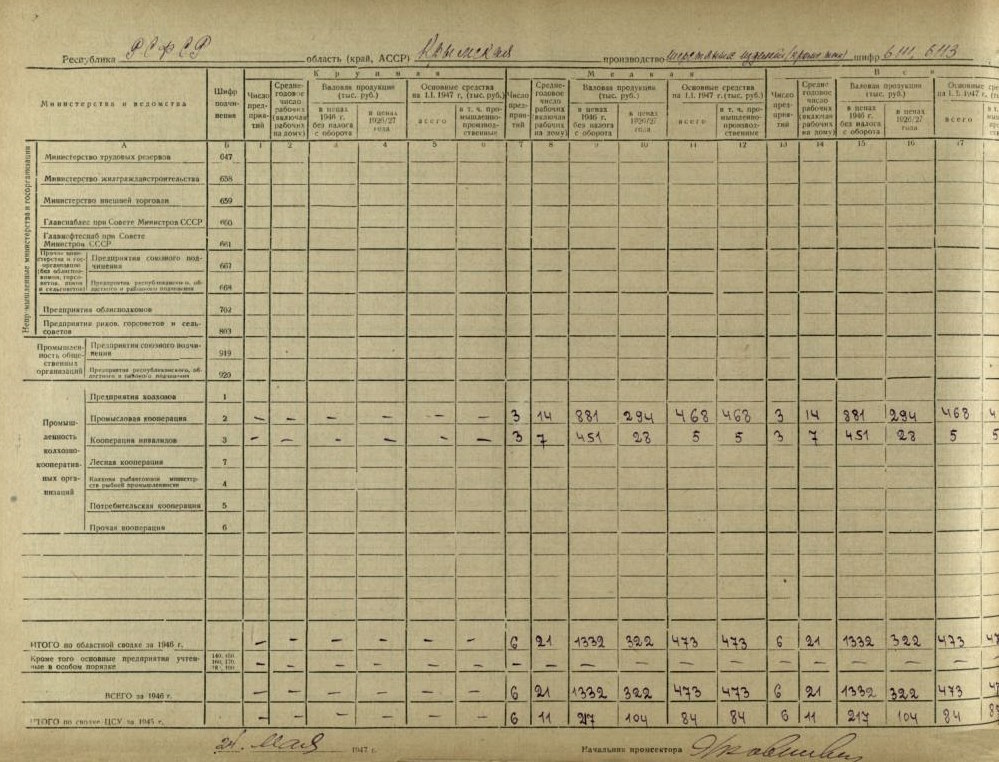 Республика РСФСР область (край, АССР) Крымская производство шифр 6111, 6113
Министерства и ведомства
Шифр подчинения
Крупная
Мелкая
Все
Число предприятий
Среднегодовое число рабочих (включая рабочих на дому)
Валовая продукция (тыс. руб.)
в ценах 1946 г. без налога с оборота
в ценах 1926/27 года
Основные средства на 1.I. 1947 г. (тыс. руб.)
всего
в т. ч. промышленно-производственные
Число предприятий
Среднегодовое число рабочих (включая рабочих на дому)
Валовая продукция (тыс. руб.)
в ценах 1946 г. без налога с оборота
в ценах 1926/27 года
Основные средства на 1.I. 1947 г. (тыс. руб.)
всего
в т. ч. промышленно-производственные
Число предприятий
Среднегодовое число рабочих (включая рабочих на дому)
Валовая продукция (тыс. руб.)
в ценах 1946 г. без налога с оборота
в ценах 1926/27 года
Основные на 1.I. 1947 г.
всего
А Б 1 2 3 4 5 6 7 8 9 10 11 12 13 14 15 16 17
Непромышленные министерства и госорганизации
Министерство трудовых резервов 647
Министерство жилгражданстроительства 658
Министерство внешней торговли 659
Главснаблес при Совете Министров СССР 660
Главнефтеснаб при Совете
Министров СССР 661
Предприятия союзного подчинения 667
Предприятия республиканского, областного и районного подчинения 668
Предприятия облисполкомов 702
Предприятия риков, горсоветов и сельсоветов 803
Промышленность общественных организаций
Предприятия союзного подчинения 919
Предприятия республиканского, областного и районного подчинения 920
Промышленность колхозно-кооперативных организаций
Предприятия колхозов 1
Промысловая кооперация 2 – – – – – – 3 14 881 294 468 468 3 14 881 294 468
Кооперация инвалидов 3 – – – – – – 3 7 451 28 5 5 3 7 451 28 5
Лесная кооперация 7
4
Потребительская кооперация 5
Прочая кооперация 6
ИТОГО по областной сводке за 1946 г. – – – – – – 6 21 1332 322 473 473 6 21 1332 322 473
Кроме того основные предприятия учтенные в особом порядке – – – – – – – – – – – – – – – – –
ВСЕГО за 1946 г. – – – – – – 6 21 1332 322 473 473 6 21 1332 322 473
ИТОГО по сводке ЦСУ за 1945 г. – – – – – – 6 11 217 104 84 84 6 11 217 104 84
21. мая 1947 г. Начальник промсектора